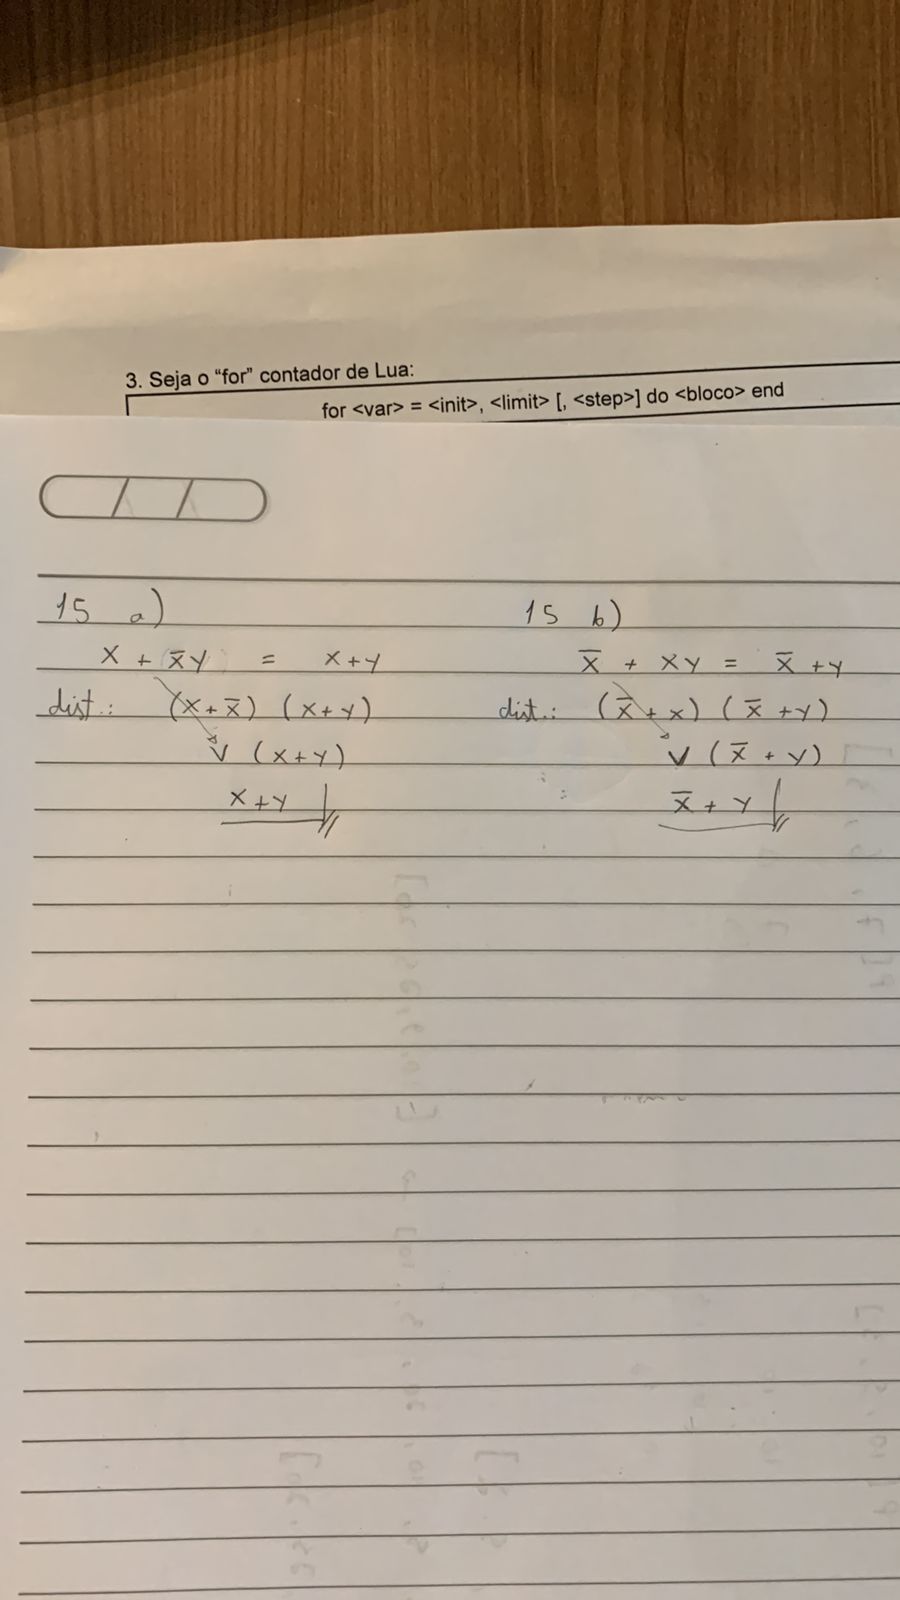 3. Seja o “for” contador de Lua:
for <var> = <init>, <limit> [, <step>] do <bloco> end
15 a)
x + x̅y = x+y
dist.: (x+x̅) (x+y)
V (x+y)
x+y
15 b)
x̅ + xy = x̅ +y
dist.: (x̅+x) (x̅ +y)
V (x̅ + y)
x̅ + y